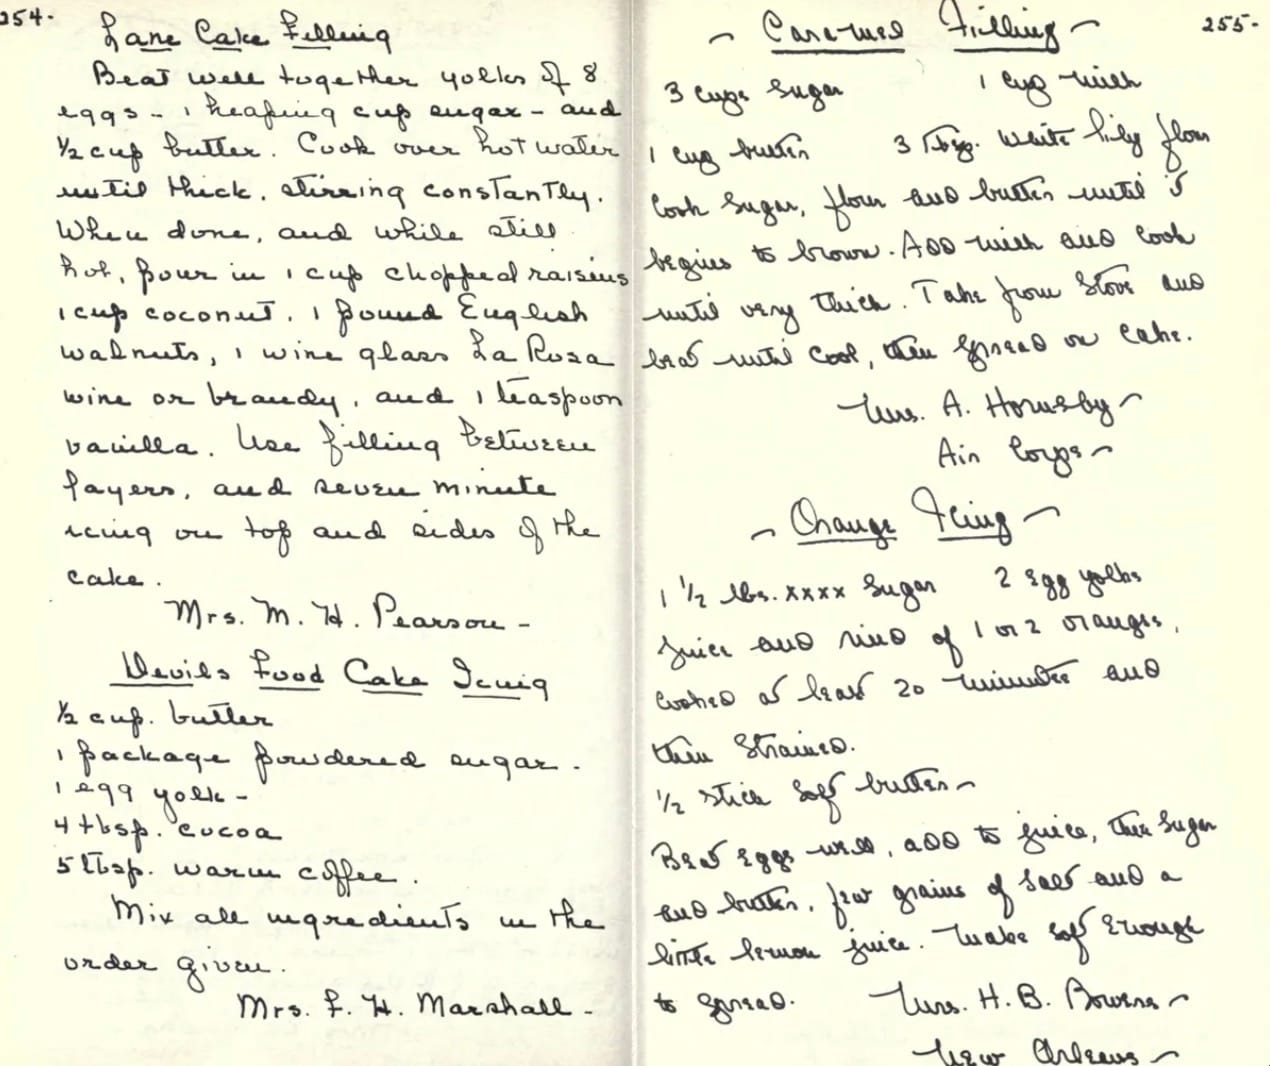 254.
Lane Cake Filling
Beat well together yolks of 8
eggs - 1 heaping cup sugar - and
½ cup butter. Cook over hot water
until thick, stirring constantly.
When done, and while still
hot, pour in 1 cup chopped raisins
1 cup coconut, 1 pound English
walnuts, 1 wine glass La Rosa
wine or brandy, and 1 teaspoon
vanilla. Use filling between
layers, and seven minute
icing on top and sides of the
cake.
Mrs. M. H. Pearson -
Devils Food Cake Icing
½ cup. butter
1 package powdered sugar.
1 egg yolk -
4 tbsp. cocoa
5 tbsp. warm coffee.
Mix all ingredients in the
order given.
Mrs. F. H. Marshall -
255-
~ Caramel Filling ~
3 cups sugar 1 cup milk
1 cup butter 3 Tbsp. White lily flour
Cook sugar, flour and butter until it
begins to brown. Add milk and cook
until very thick. Take from stove and
beat until cool, then spread on cake.
Mrs. A. Hornsby ~
Air Corps ~
~ Orange Icing ~
1 ½ lbs. xxxx sugar 2 egg yolks
juice and rind of 1 or 2 oranges,
cooked at least 20 minutes and
then strained.
½ stick soft butter ~
Beat eggs well, add to juice, then sugar
and butter, few grains of salt and a
little lemon juice. Make soft enough
to spread. Mrs. H. B. Bowens ~
New Orleans ~